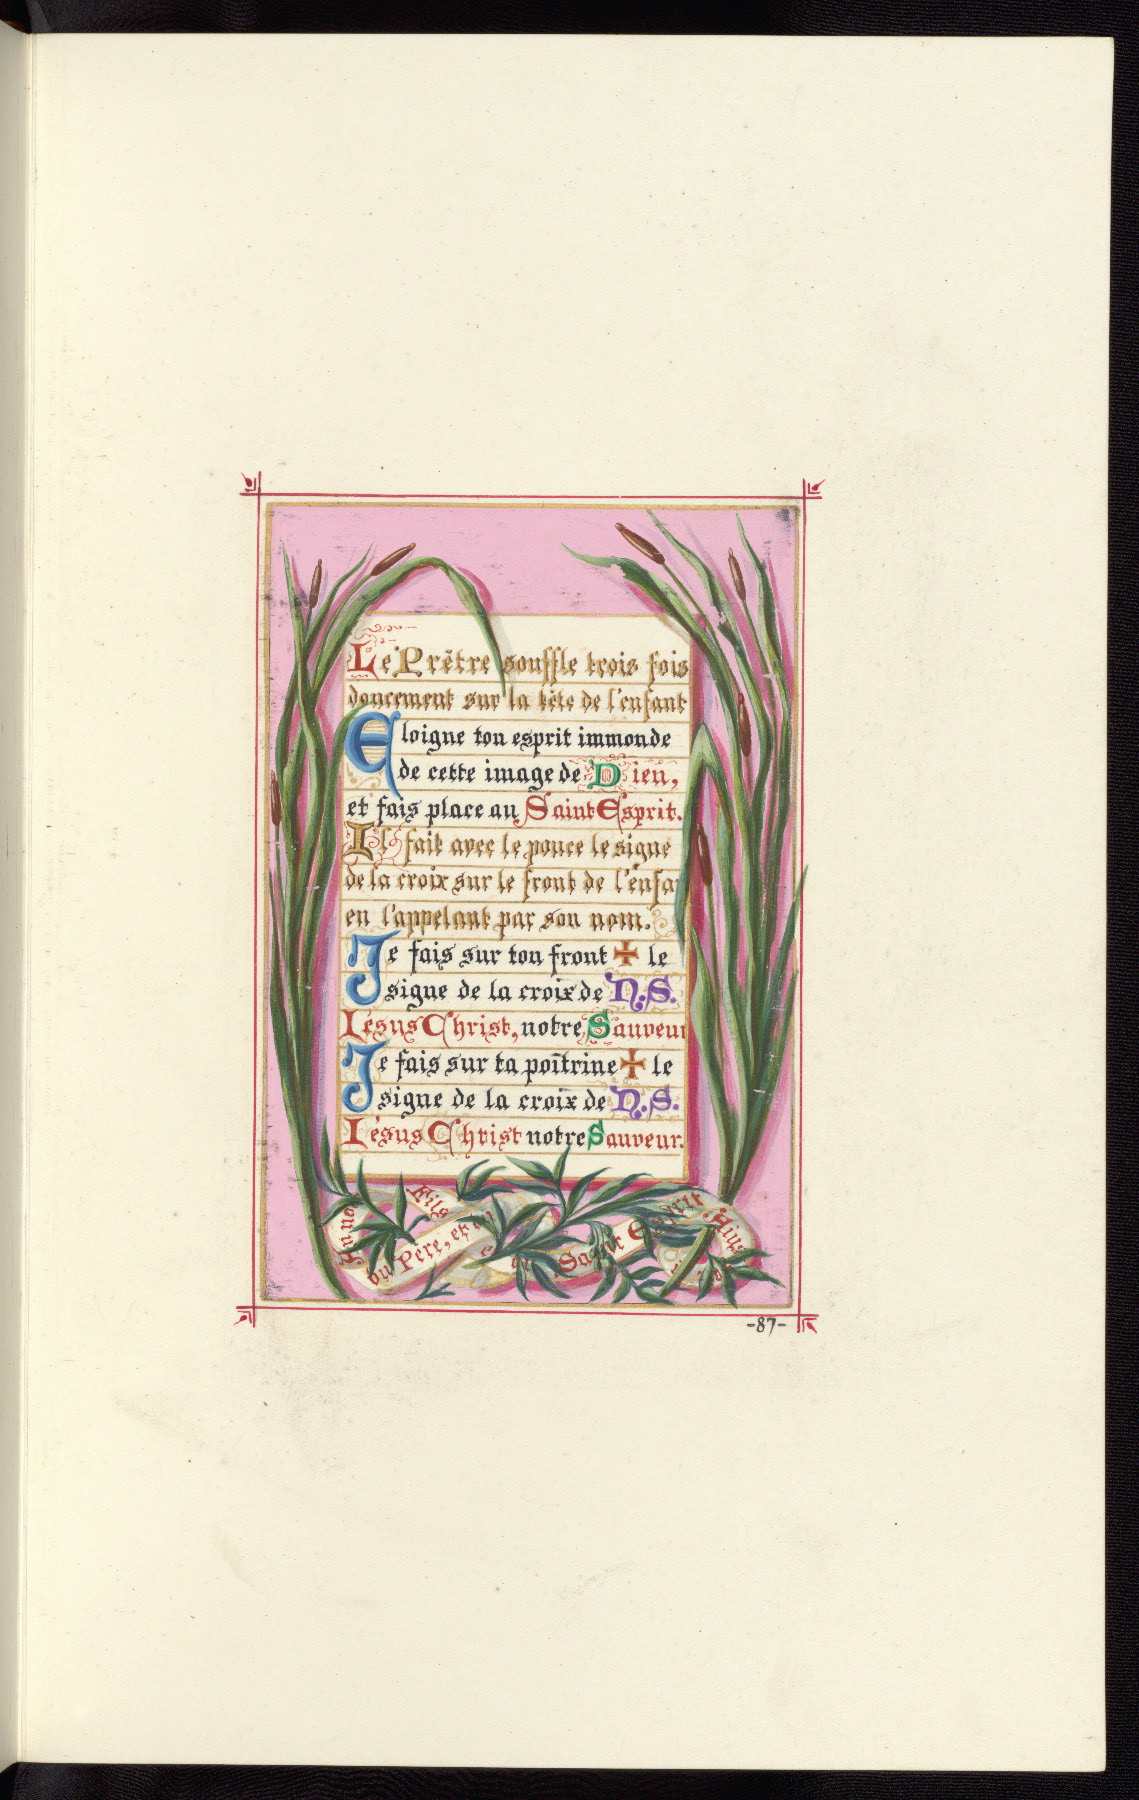 Le Prêtre souffle trois fois
doucement sur la tête de l'enfant
Eloigne ton esprit immonde
de cette image de Dieu,
et fais place au Saint Esprit.
Il fait avec le pouce le signe
de la croix sur le front de l'enfa
en l'appelant par son nom.
Je fais sur ton front + le
signe de la croix de N.S.
Jésus Christ, notre Sauveur
Je fais sur ta poitrine + le
signe de la croix de N.S.
Jésus Christ notre Sauveur.
Au no
du Père, et du
Fils
Saint Esprit
Ains
-87-